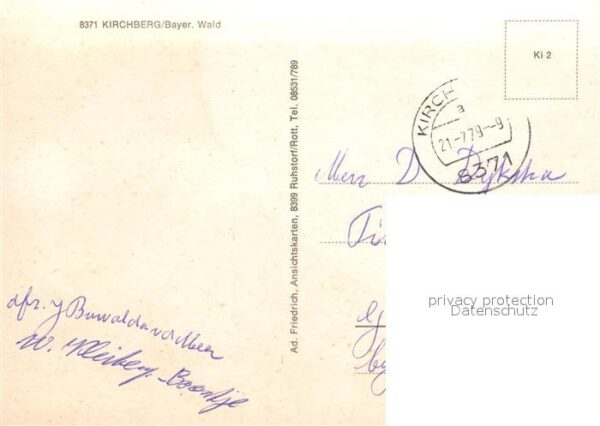 8371 KIRCHBERG/Bayer. Wald
Ki 2
KIRCH
a
21-7.79-9
8371
Ad. Friedrich, Ansichtskarten, 8399 Ruhstorf/Rott, Tel. 08531/789
D Dykstra
privacy protection
Datenschutz
dfz. J Buwalda vd Meer
W.